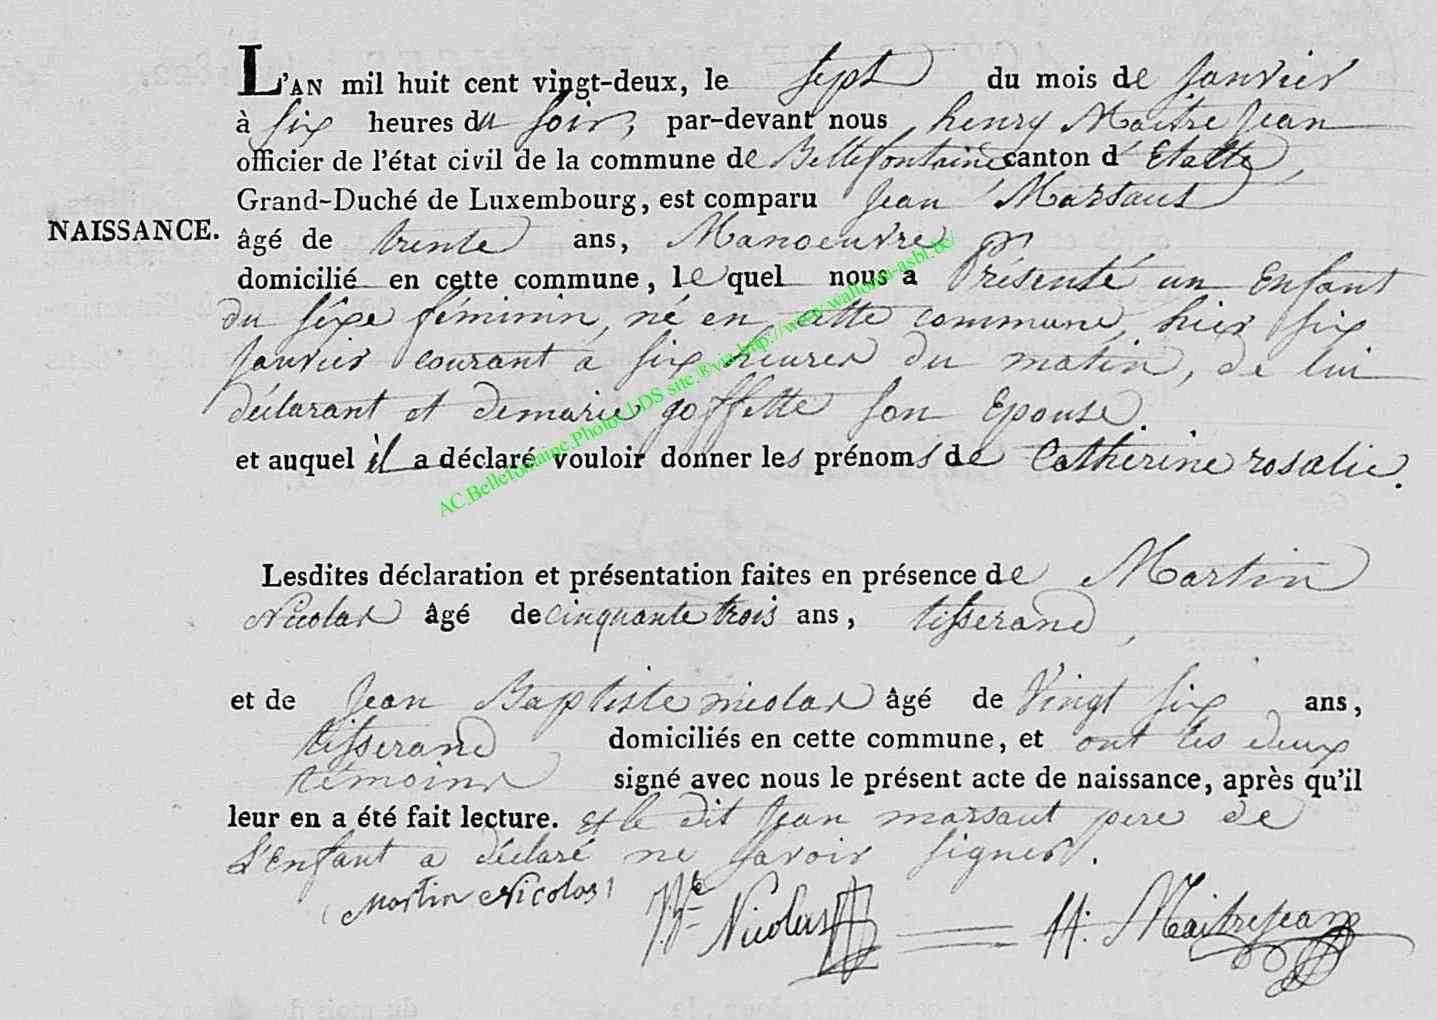 L'AN mil huit cent vingt-deux, le sept du mois de Janvier
à six heures du soir, par-devant nous henry Maitre Jean
officier de l'état civil de la commune de Bellefontaine canton d'Etalle,
Grand-Duché de Luxembourg, est comparu Jean Marsaut
NAISSANCE.
âgé de trente ans, Manoeuvre
domicilié en cette commune, lequel nous a Présenté un Enfant
du sexe féminin, né en cette commune, hier six
Janvier courant à six heures du matin, de lui
déclarant et de marie goffette son Epouse.
et auquel il a déclaré vouloir donner les prénoms de Catherine rosalie.
AC.Bellefontaine.Photos LDS site.®via http://www.wallonia-asbl.be/
Lesdites déclaration et présentation faites en présence de Martin
Nicolas âgé de cinquante trois ans, tisserand,
et de Jean Baptiste nicolas âgé de Vingt six ans,
tisserand domiciliés en cette commune, et ont les deux
témoins signé avec nous le présent acte de naissance, après qu'il
leur en a été fait lecture. et le dit Jean marsaut pere de
L'enfant a déclaré ne savoir signer.
Martin Nicolas J.Bte Nicolas H. Maitrejean